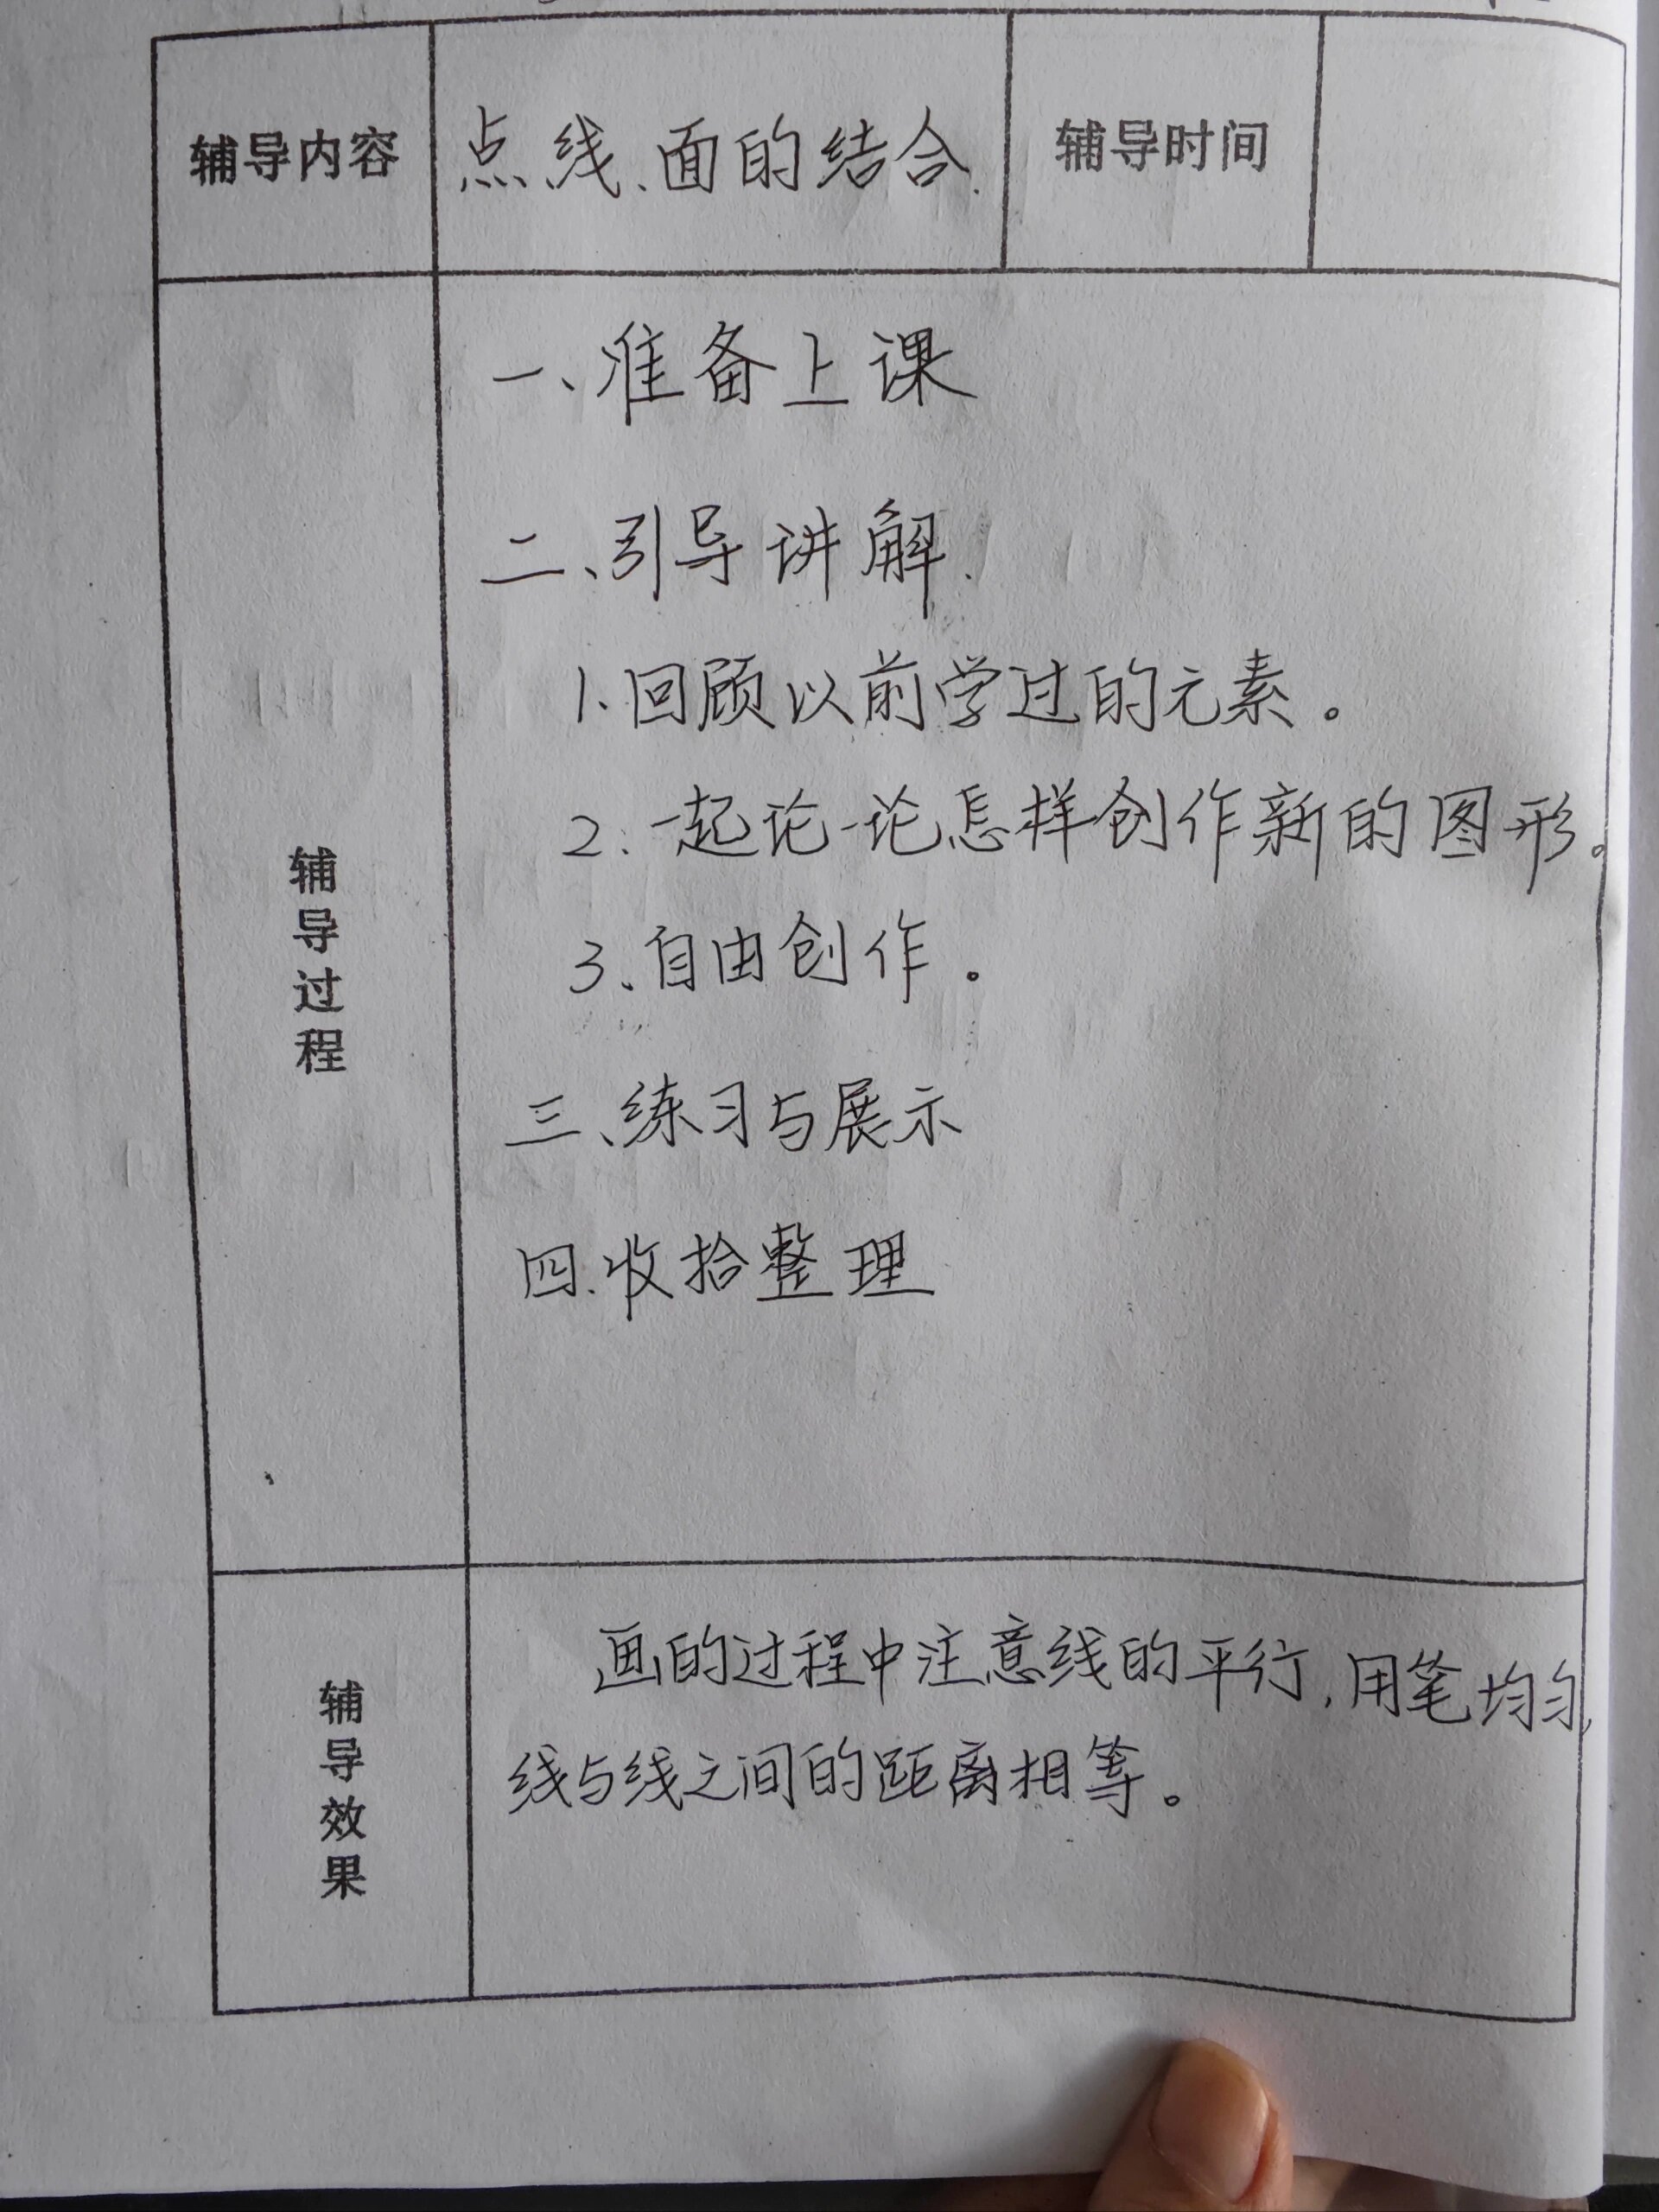 辅导内容 点、线、面的结合. 辅导时间
一、准备上课
二、引导讲解.
1、回顾以前学过的元素。
2、一起论一论怎样创作新的图形。
3、自由创作。
辅导过程
三、练习与展示
四、收拾整理
画的过程中注意线的平行,用笔均匀,
线与线之间的距离相等。
辅导效果